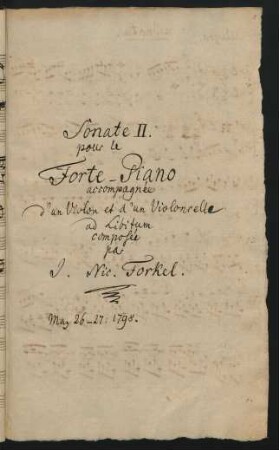 Sonate II.
pour le
Forte-Piano
accompagnée
d'un Violon et d'un Violoncelle
ad Libitum
composée
par
J. Nic. Forkel.
May 26-27. 1798.